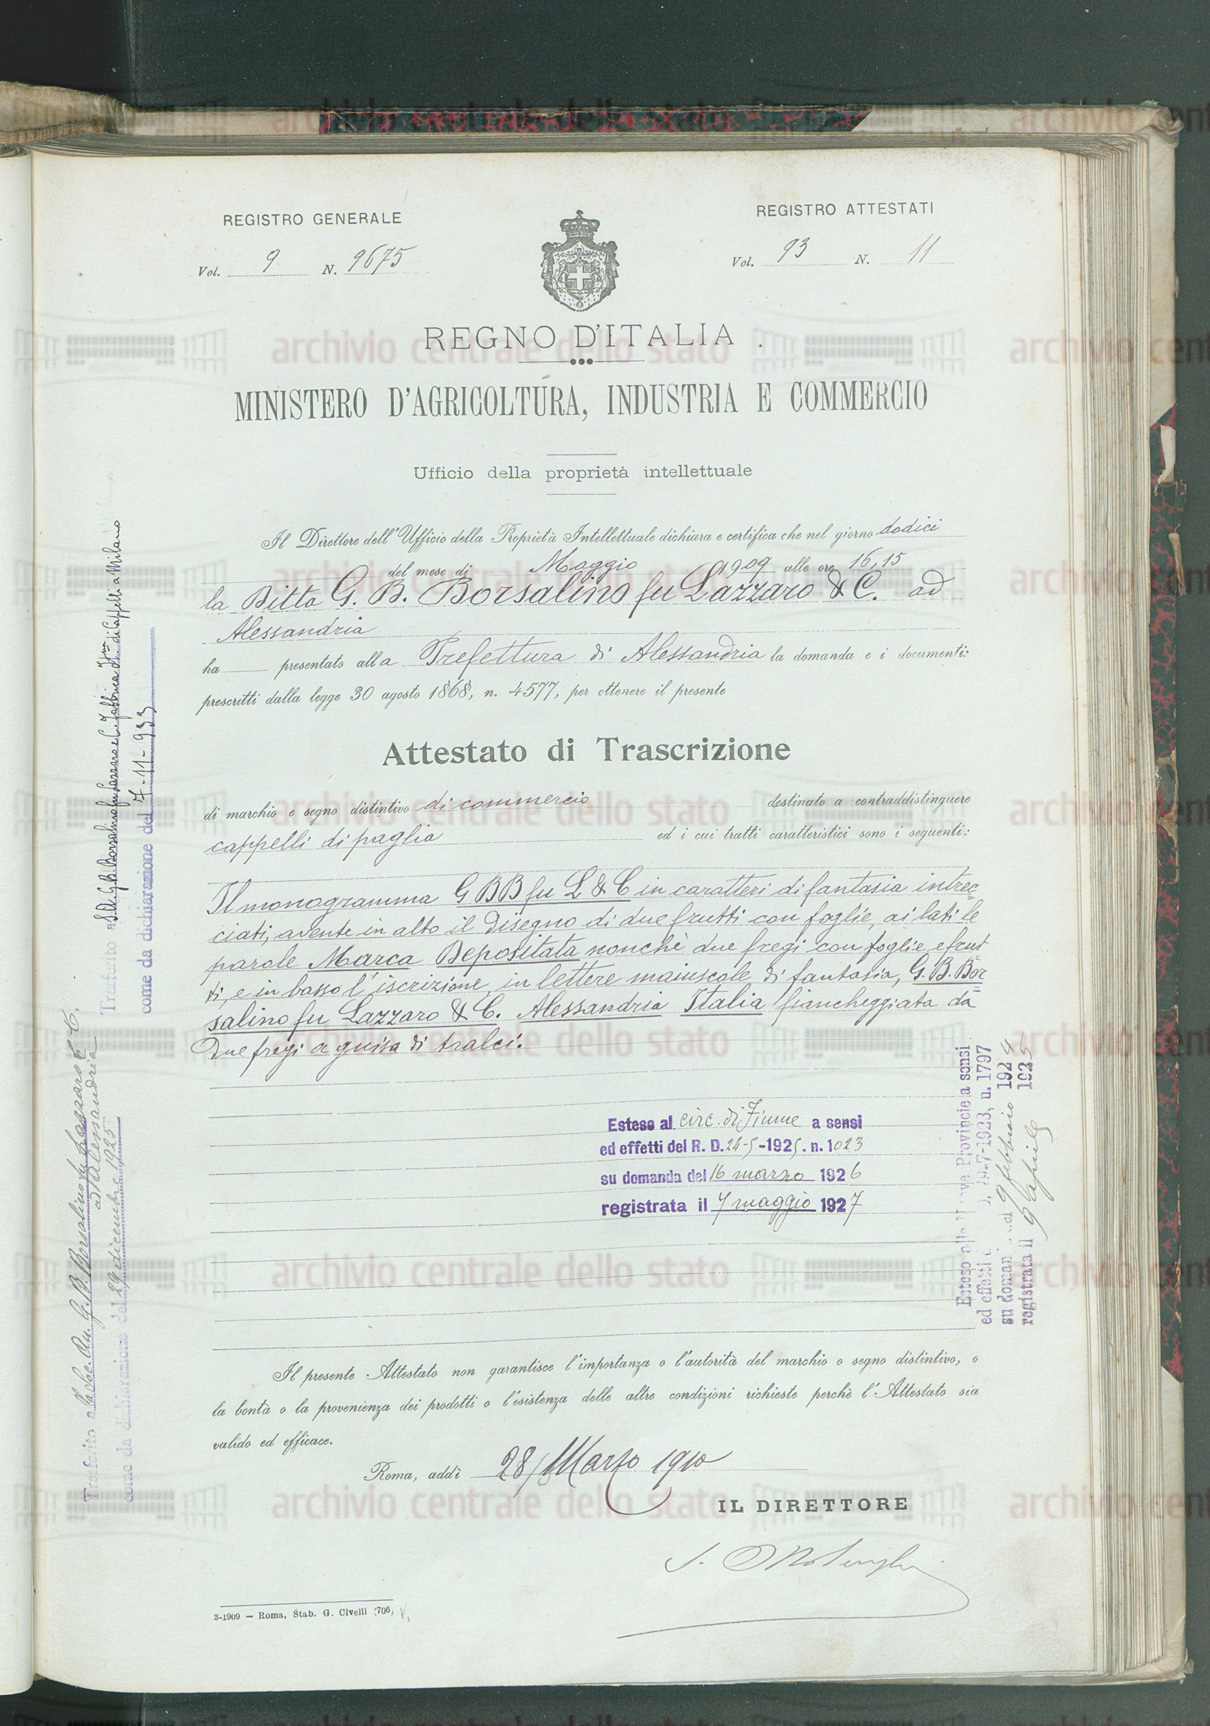 REGISTRO GENERALE
Vol. 9 N. 9675
REGISTRO ATTESTATI
Vol. 93 N. 11
REGNO D'ITALIA
MINISTERO D'AGRICOLTURA, INDUSTRIA E COMMERCIO
Ufficio della proprietà intellettuale
Il Direttore dell'Ufficio della Proprietà Intellettuale dichiara e certifica che nel giorno dodici
del mese di Maggio 1909 alle ore 16,15
la Ditta G. B. Borsalino fu Lazzaro & C. ad
Alessandria
ha presentato alla Prefettura di Alessandria la domanda e i documenti:
prescritti dalla legge 30 agosto 1868, n. 4577, per ottenere il presente
Attestato di Trascrizione
di marchio e segno distintivo di commercio destinato a contraddistinguere
cappelli di paglia ed i cui tratti caratteristici sono i seguenti:
Il monogramma G B B fu L & C in caratteri di fantasia intrec=
ciati, avente in alto il disegno di due frutti con foglie, ai lati le
parole Marca Depositata nonchè due fregi con foglie e frut=
ti, e in basso l'iscrizione, in lettere maiuscole di fantasia, G. B. Bor=
salino fu Lazzaro & C. Alessandria Italia fiancheggiata da
due fregi a guisa di tralci.
Esteso al circ. di Fiume a sensi
ed effetti del R. D. 24-5-1925. n. 1023
su domanda del 16 marzo 1926
registrata il 7 maggio 1927
Esteso alle nuove Provincie a sensi
ed effetti 29-7-1923, n. 1797
su domanda del 9 febbraio 1924
registrata il 9 aprile 1925
Trasferito a S.A. G.B. Borsalino fu Lazzaro e C. Fabbrica di Cappelli a Milano
come da dichiarazione del 7-11-933
Trasferito alla Soc. An. G. B. Borsalino fu Lazzaro e C.
ad Alessandria
come da dichiarazione del 29 dicembre 1925
Il presente Attestato non garantisce l'importanza o l'autorità del marchio o segno distintivo, o
la bontà o la provenienza dei prodotti o l'esistenza delle altre condizioni richieste perchè l'Attestato sia
valido ed efficace.
Roma, addì 28 Marzo 1910
IL DIRETTORE
3-1909 — Roma, Stab. G. Civelli (706)
archivio centrale dello stato